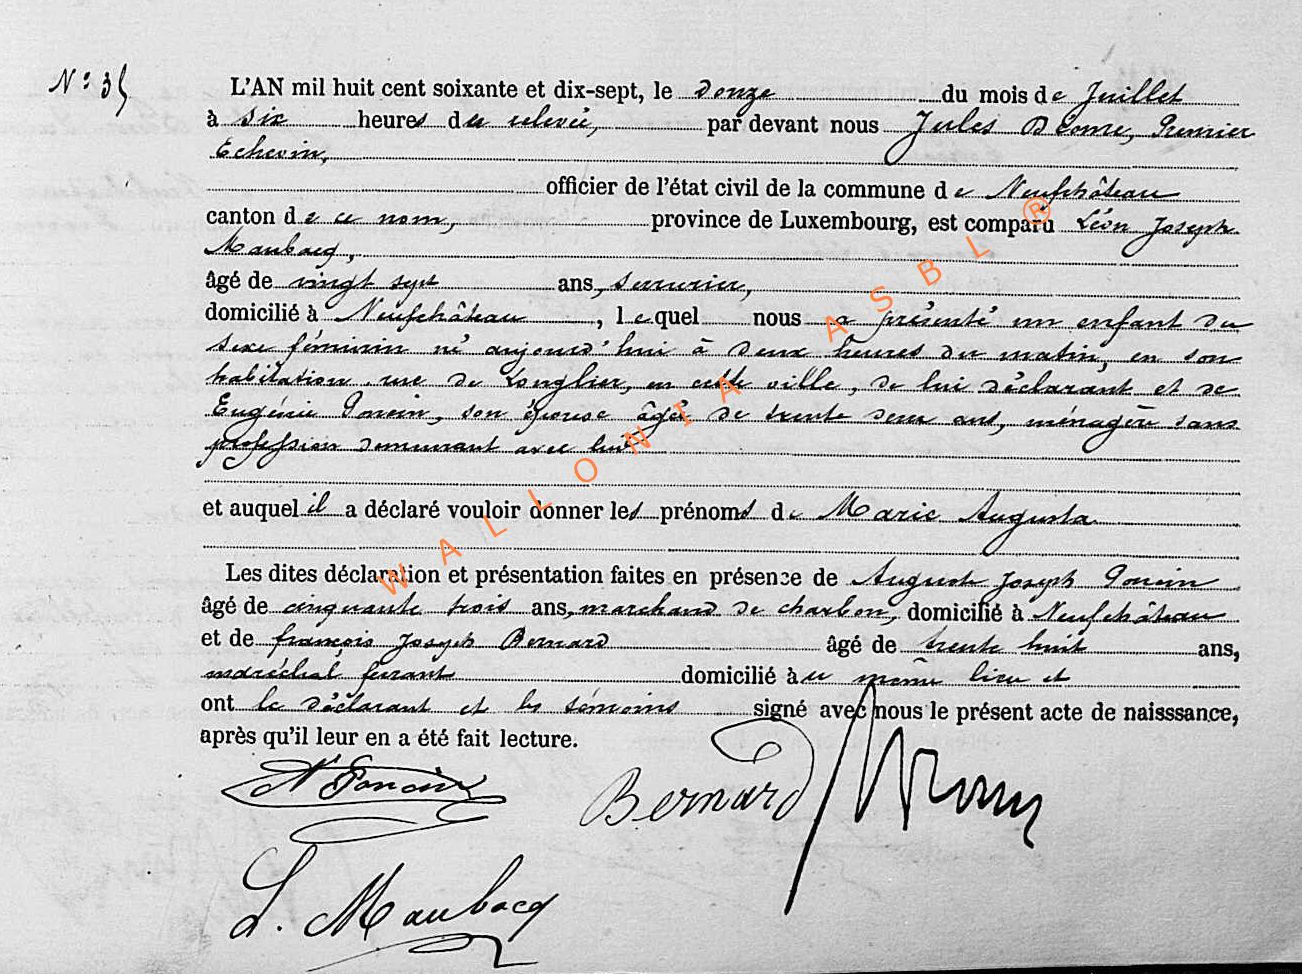 N° 35
L'AN mil huit cent soixante et dix-sept, le douze du mois de Juillet
à six heures du relevée, par devant nous Jules , Premier
Echevin,
officier de l'état civil de la commune de Neufchâteau
canton de ce nom, province de Luxembourg, est comparu Léon Joseph
Maubacq,
âgé de vingt sept ans, serrurier,
domicilié à Neufchâteau, lequel nous a présenté un enfant du
sexe féminin né aujourd'hui à deux heures du matin, en son
habitation rue de Longlier, en cette ville, de lui déclarant et de
Eugénie Poncin, son épouse âgée de trente deux ans, ménagère sans
profession demeurant avec lui
et auquel il a déclaré vouloir donner les prénoms de Marie Augusta
Les dites déclaration et présentation faites en présence de Auguste Joseph Poncin
âgé de cinquante trois ans, marchand de charbon, domicilié à Neufchâteau
et de françois Joseph Bernard âgé de trente huit ans,
maréchal ferrant domicilié au même lieu et
ont le déclarant et les témoins signé avec nous le présent acte de naisssance,
après qu'il leur en a été fait lecture.
Poncin Bernard
L. Maubacq
WALLONIA ASBL ®